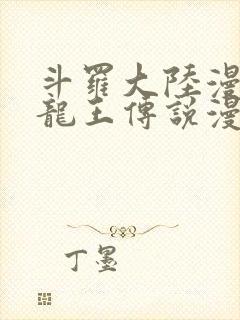 斗羅大陸漫
龍王傳說漫
丁墨